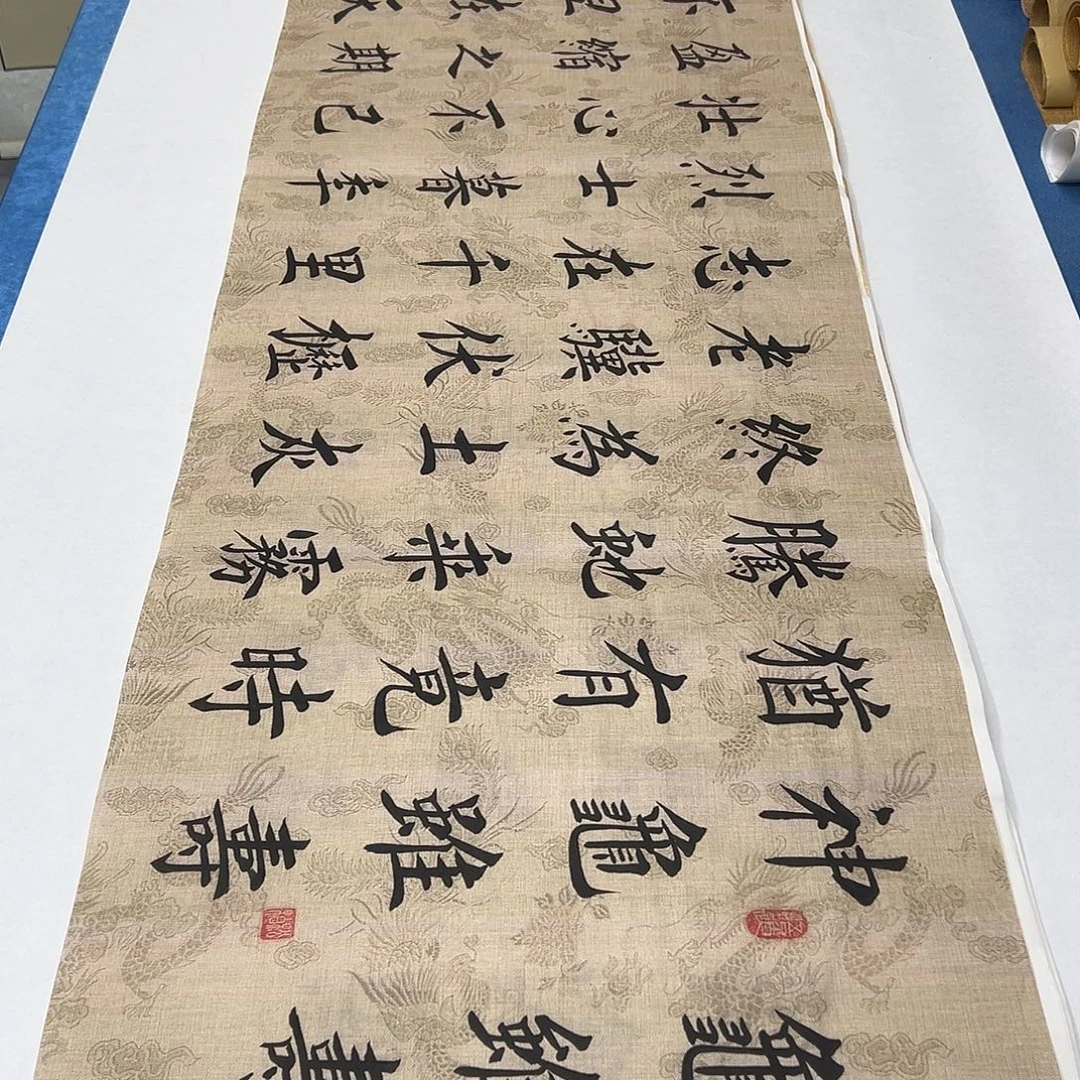 龜雖壽
神龜雖壽
猶有竟時
騰虵乗霧
終為土灰
老驥伏櫪
志在千里
烈士暮年
壯心不已
盈縮之期